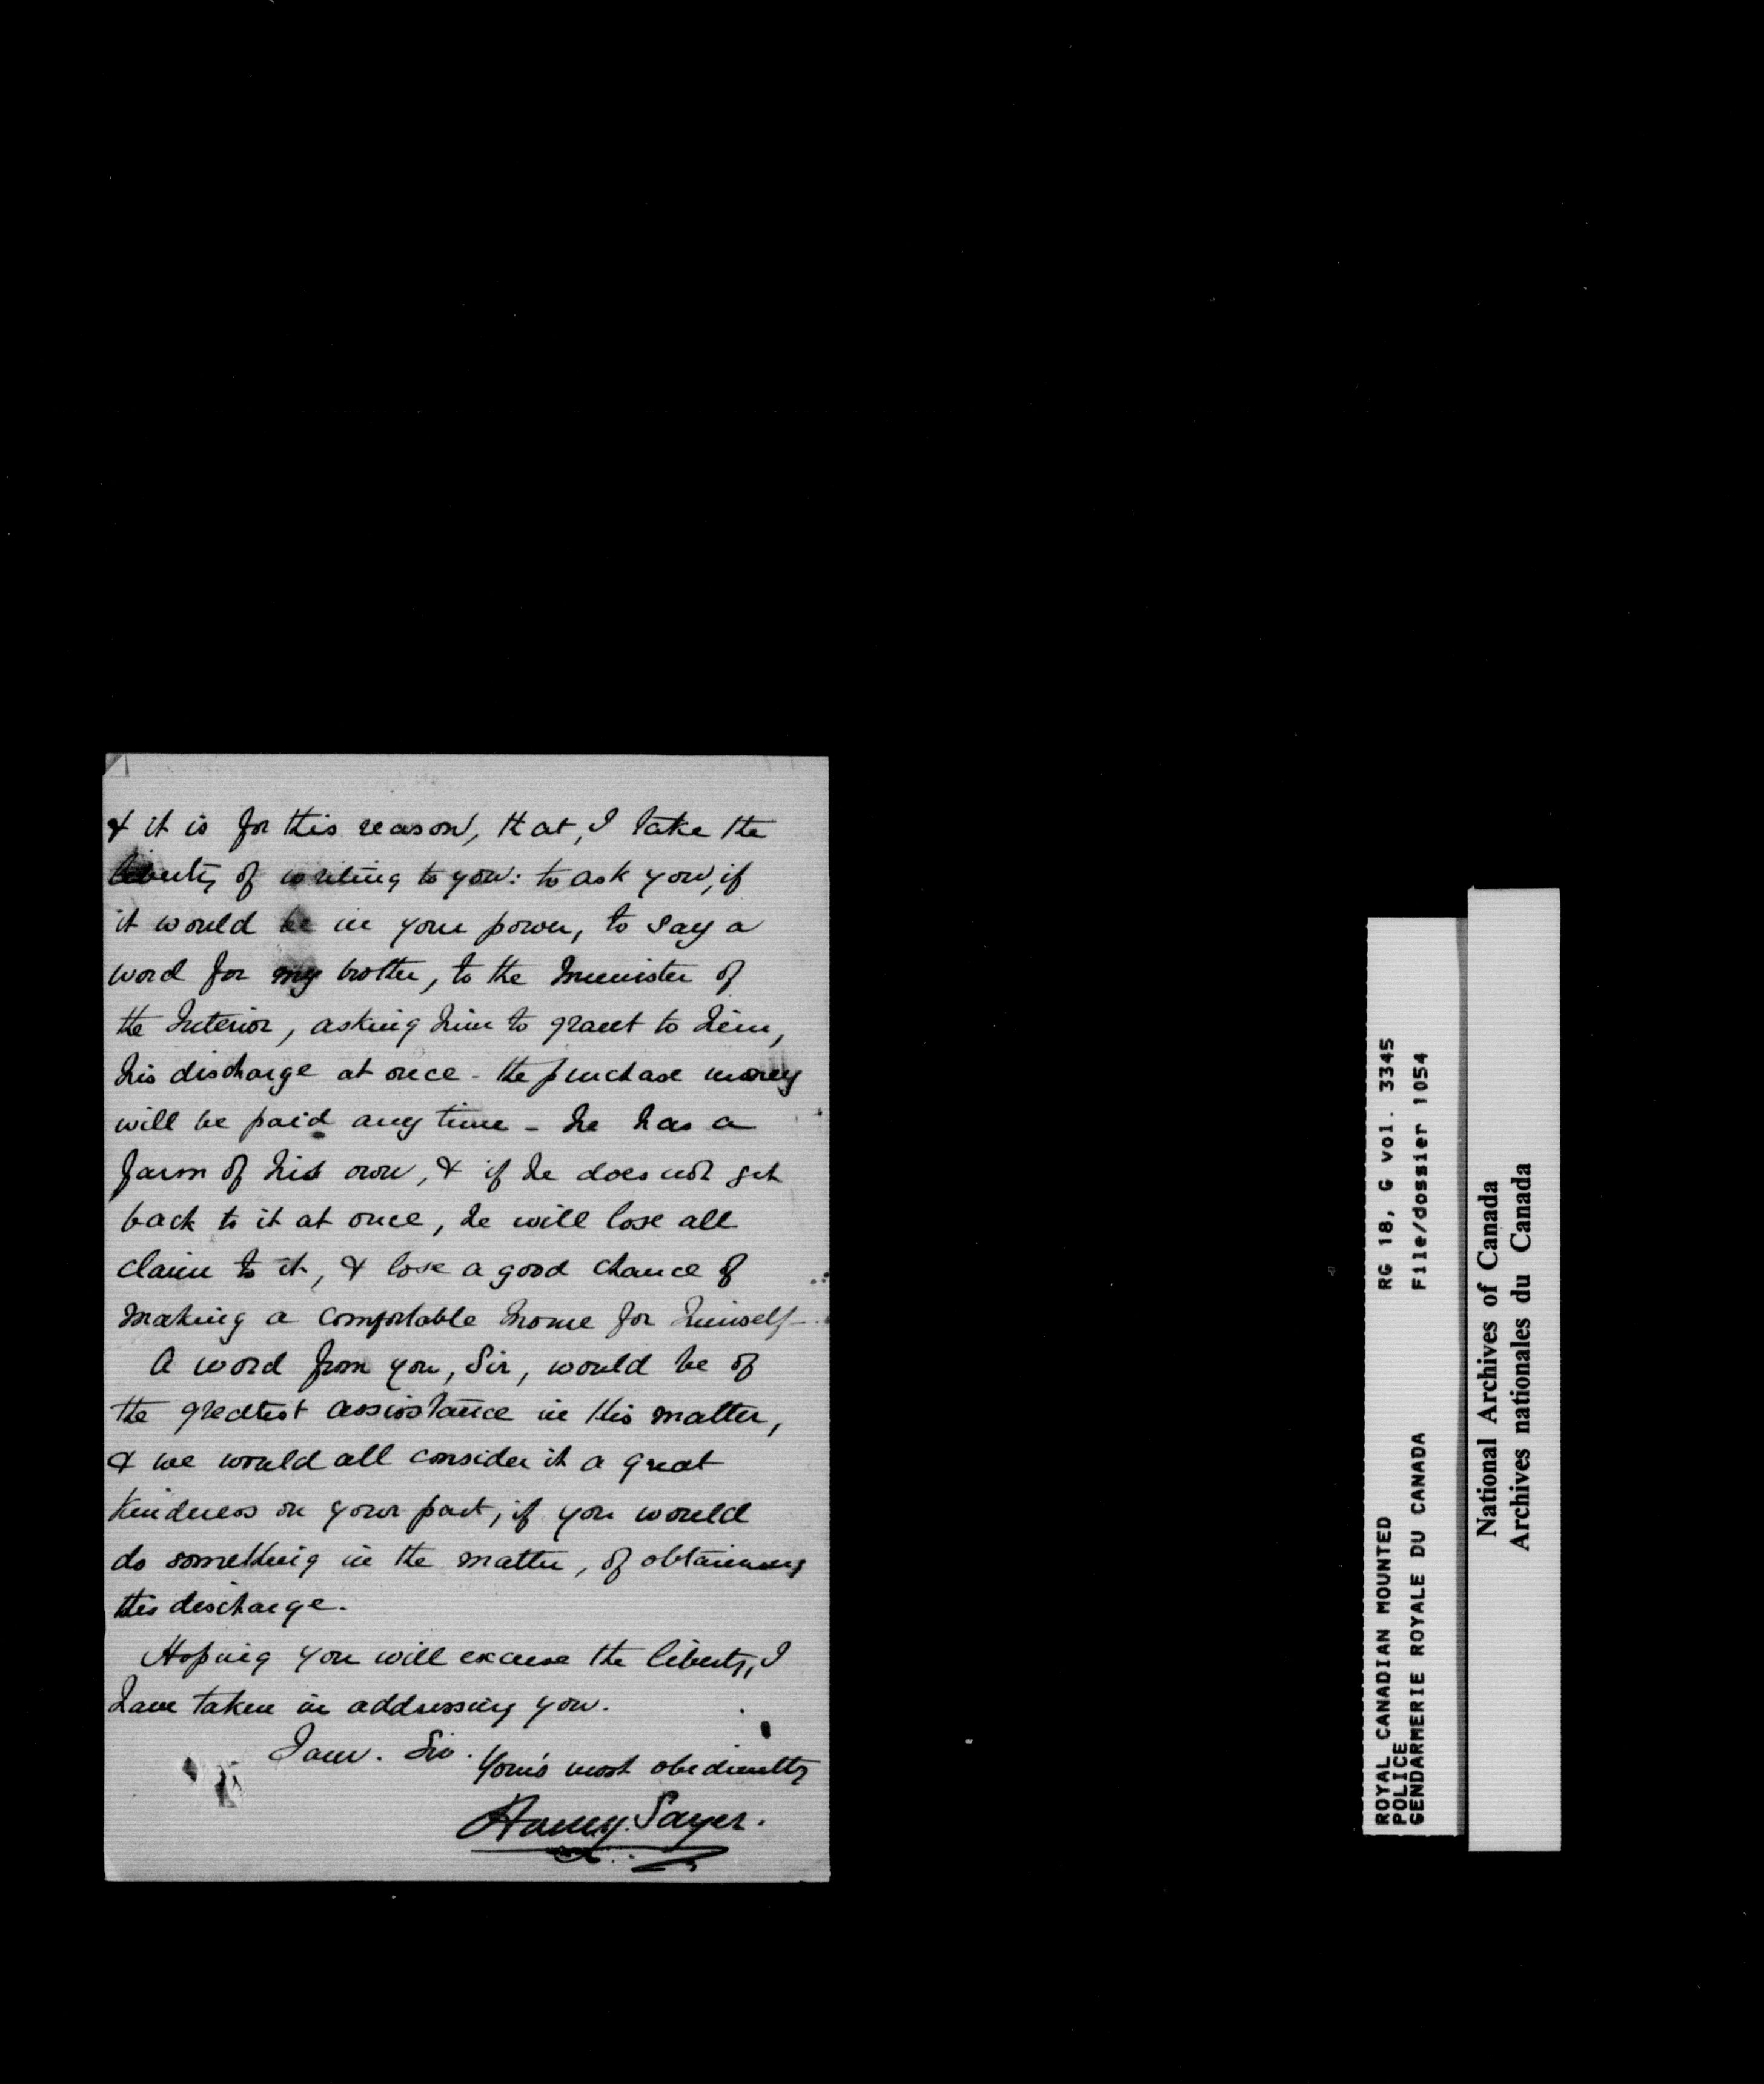 & it is for this reason, that, I take the
liberty of writing to you: to ask you, if
it would be in your power, to say a
word for my brother, to the Minister of
the Interior, asking him to grant to him,
his discharge at once - the purchase money
will be paid any time - he has a
farm of his own, & if he does not get
back to it at once, he will lose all
claim to it, & lose a good chance of
making a comfortable home for himself -
A word from you, Sir, would be of
the greatest assistance in this matter,
& we would all consider it a great
kindness on your part, if you would
do something in the matter, of obtaining
this discharge.
Hoping you will excuse the liberty, I
have taken in addressing you.
I am. Sir.
Your's most obediently
Sayer.
ROYAL CANADIAN MOUNTED RG 18, G vol. 3345
POLICE
GENDARMERIE ROYALE DU CANADA File/dossier 1054
National Archives of Canada
Archives nationales du Canada